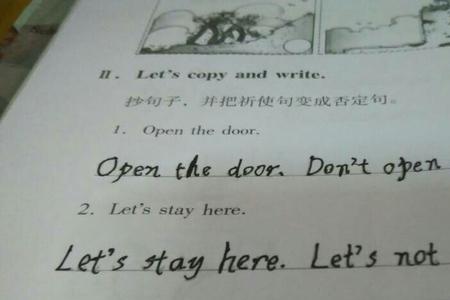 II. Let's copy and write.
抄句子，并把祈使句变成否定句。
1. Open the door.
Open the door. Don't open
2. Let's stay here.
Let's stay here. Let's not